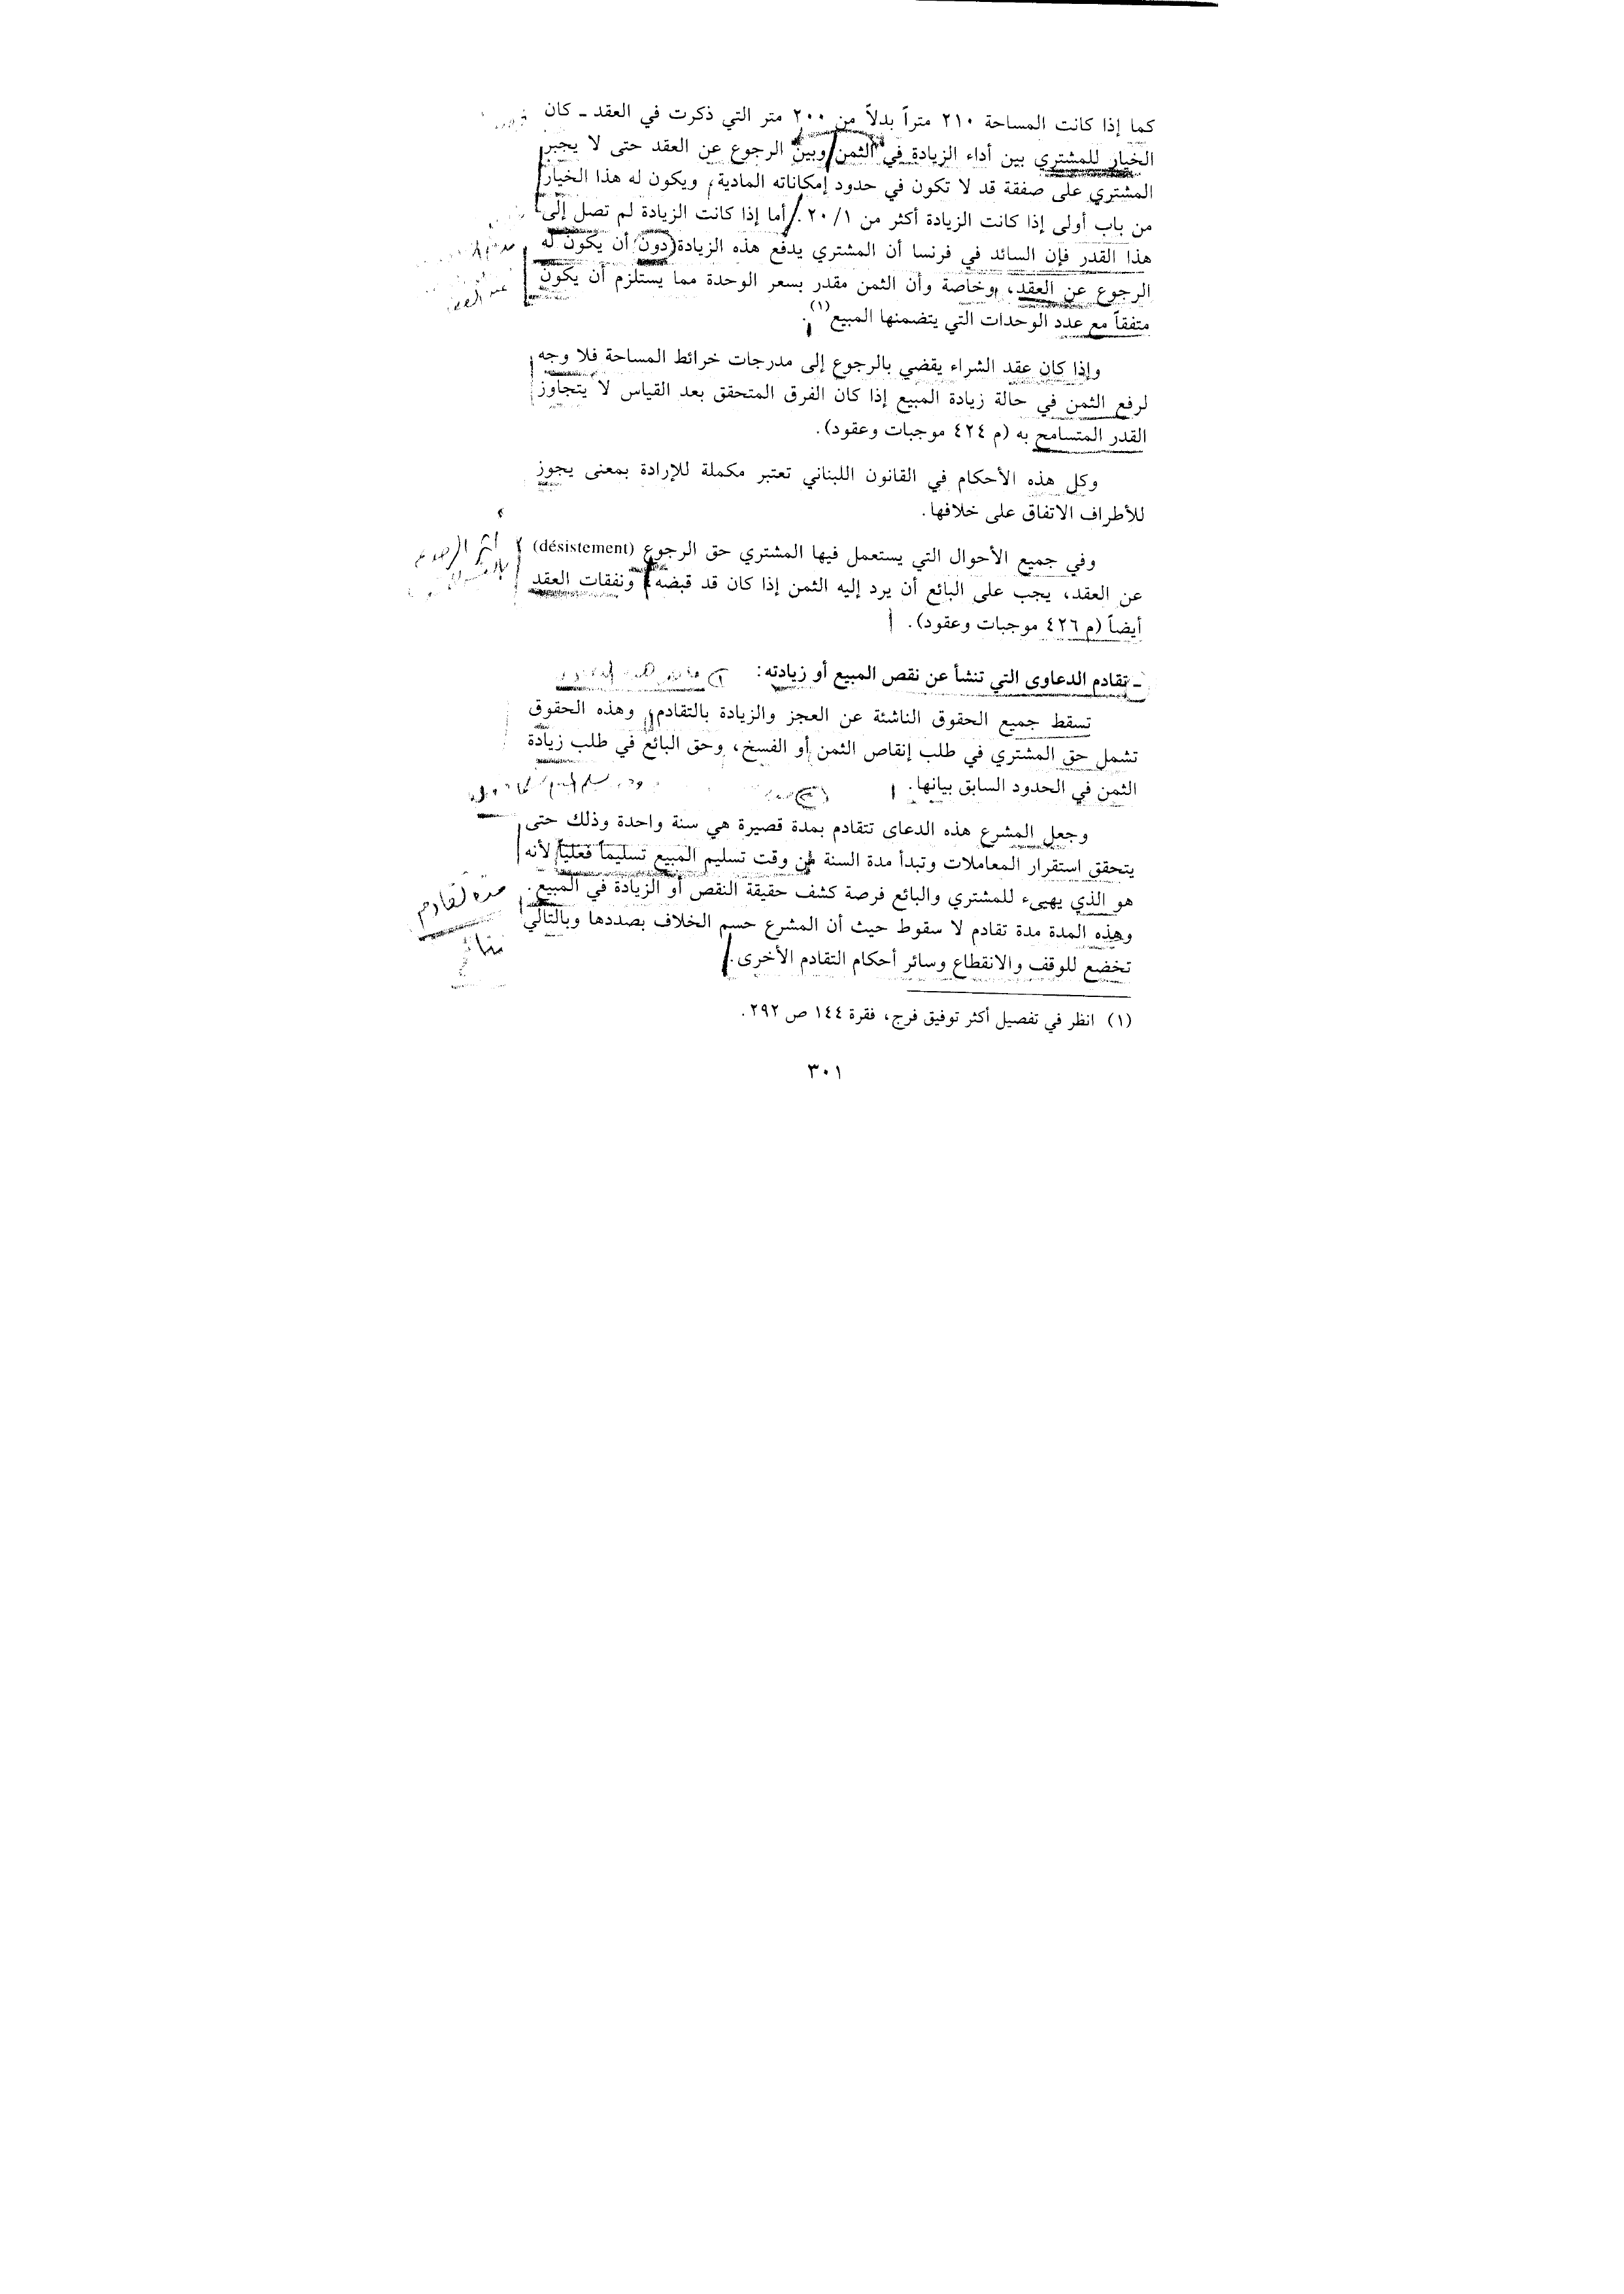 كما إذا كانت المساحة ٢١٠ متراً بدلاً من ٢٠٠ متر التي ذكرت في العقد ـ كان
الخيار للمشتري بين أداء الزيادة في الثمن وبين الرجوع عن العقد حتى لا يجبر
المشتري على صفقة قد لا تكون في حدود إمكاناته المادية، ويكون له هذا الخيار
من باب أولى إذا كانت الزيادة أكثر من ٢٠/١. أما إذا كانت الزيادة لم تصل إلى
هذا القدر فإن السائد في فرنسا أن المشتري يدفع هذه الزيادة دون أن يكون له
الرجوع عن العقد، وخاصة وأن الثمن مقدر بسعر الوحدة مما يستلزم أن يكون
متفقاً مع عدد الوحدات التي يتضمنها المبيع (١).
وإذا كان عقد الشراء يقضي بالرجوع إلى مدرجات خرائط المساحة فلا وجه
لرفع الثمن في حالة زيادة المبيع إذا كان الفرق المتحقق بعد القياس لا يتجاوز
القدر المتسامح به (م ٤٢٤ موجبات وعقود).
وكل هذه الأحكام في القانون اللبناني تعتبر مكملة للإرادة بمعنى يجوز
للأطراف الاتفاق على خلافها.
وفي جميع الأحوال التي يستعمل فيها المشتري حق الرجوع (désistement)
عن العقد، يجب على البائع أن يرد إليه الثمن إذا كان قد قبضه ونفقات العقد
أيضاً (م ٤٢٦ موجبات وعقود).
ـ تقادم الدعاوى التي تنشأ عن نقص المبيع أو زيادته:
تسقط جميع الحقوق الناشئة عن العجز والزيادة بالتقادم، وهذه الحقوق
تشمل حق المشتري في طلب إنقاص الثمن أو الفسخ، وحق البائع في طلب زيادة
الثمن في الحدود السابق بيانها.
وجعل المشرع هذه الدعاى تتقادم بمدة قصيرة هي سنة واحدة وذلك حتى
يتحقق استقرار المعاملات وتبدأ مدة السنة من وقت تسليم المبيع تسليماً فعلياً لأنه
هو الذي يهيىء للمشتري والبائع فرصة كشف حقيقة النقص أو الزيادة في المبيع.
وهذه المدة مدة تقادم لا سقوط حيث أن المشرع حسم الخلاف بصددها وبالتالي
تخضع للوقف والانقطاع وسائر أحكام التقادم الأخرى.
مدة تقادم
(١) انظر في تفصيل أكثر توفيق فرج، فقرة ١٤٤ ص ٢٩٢.
٣٠١